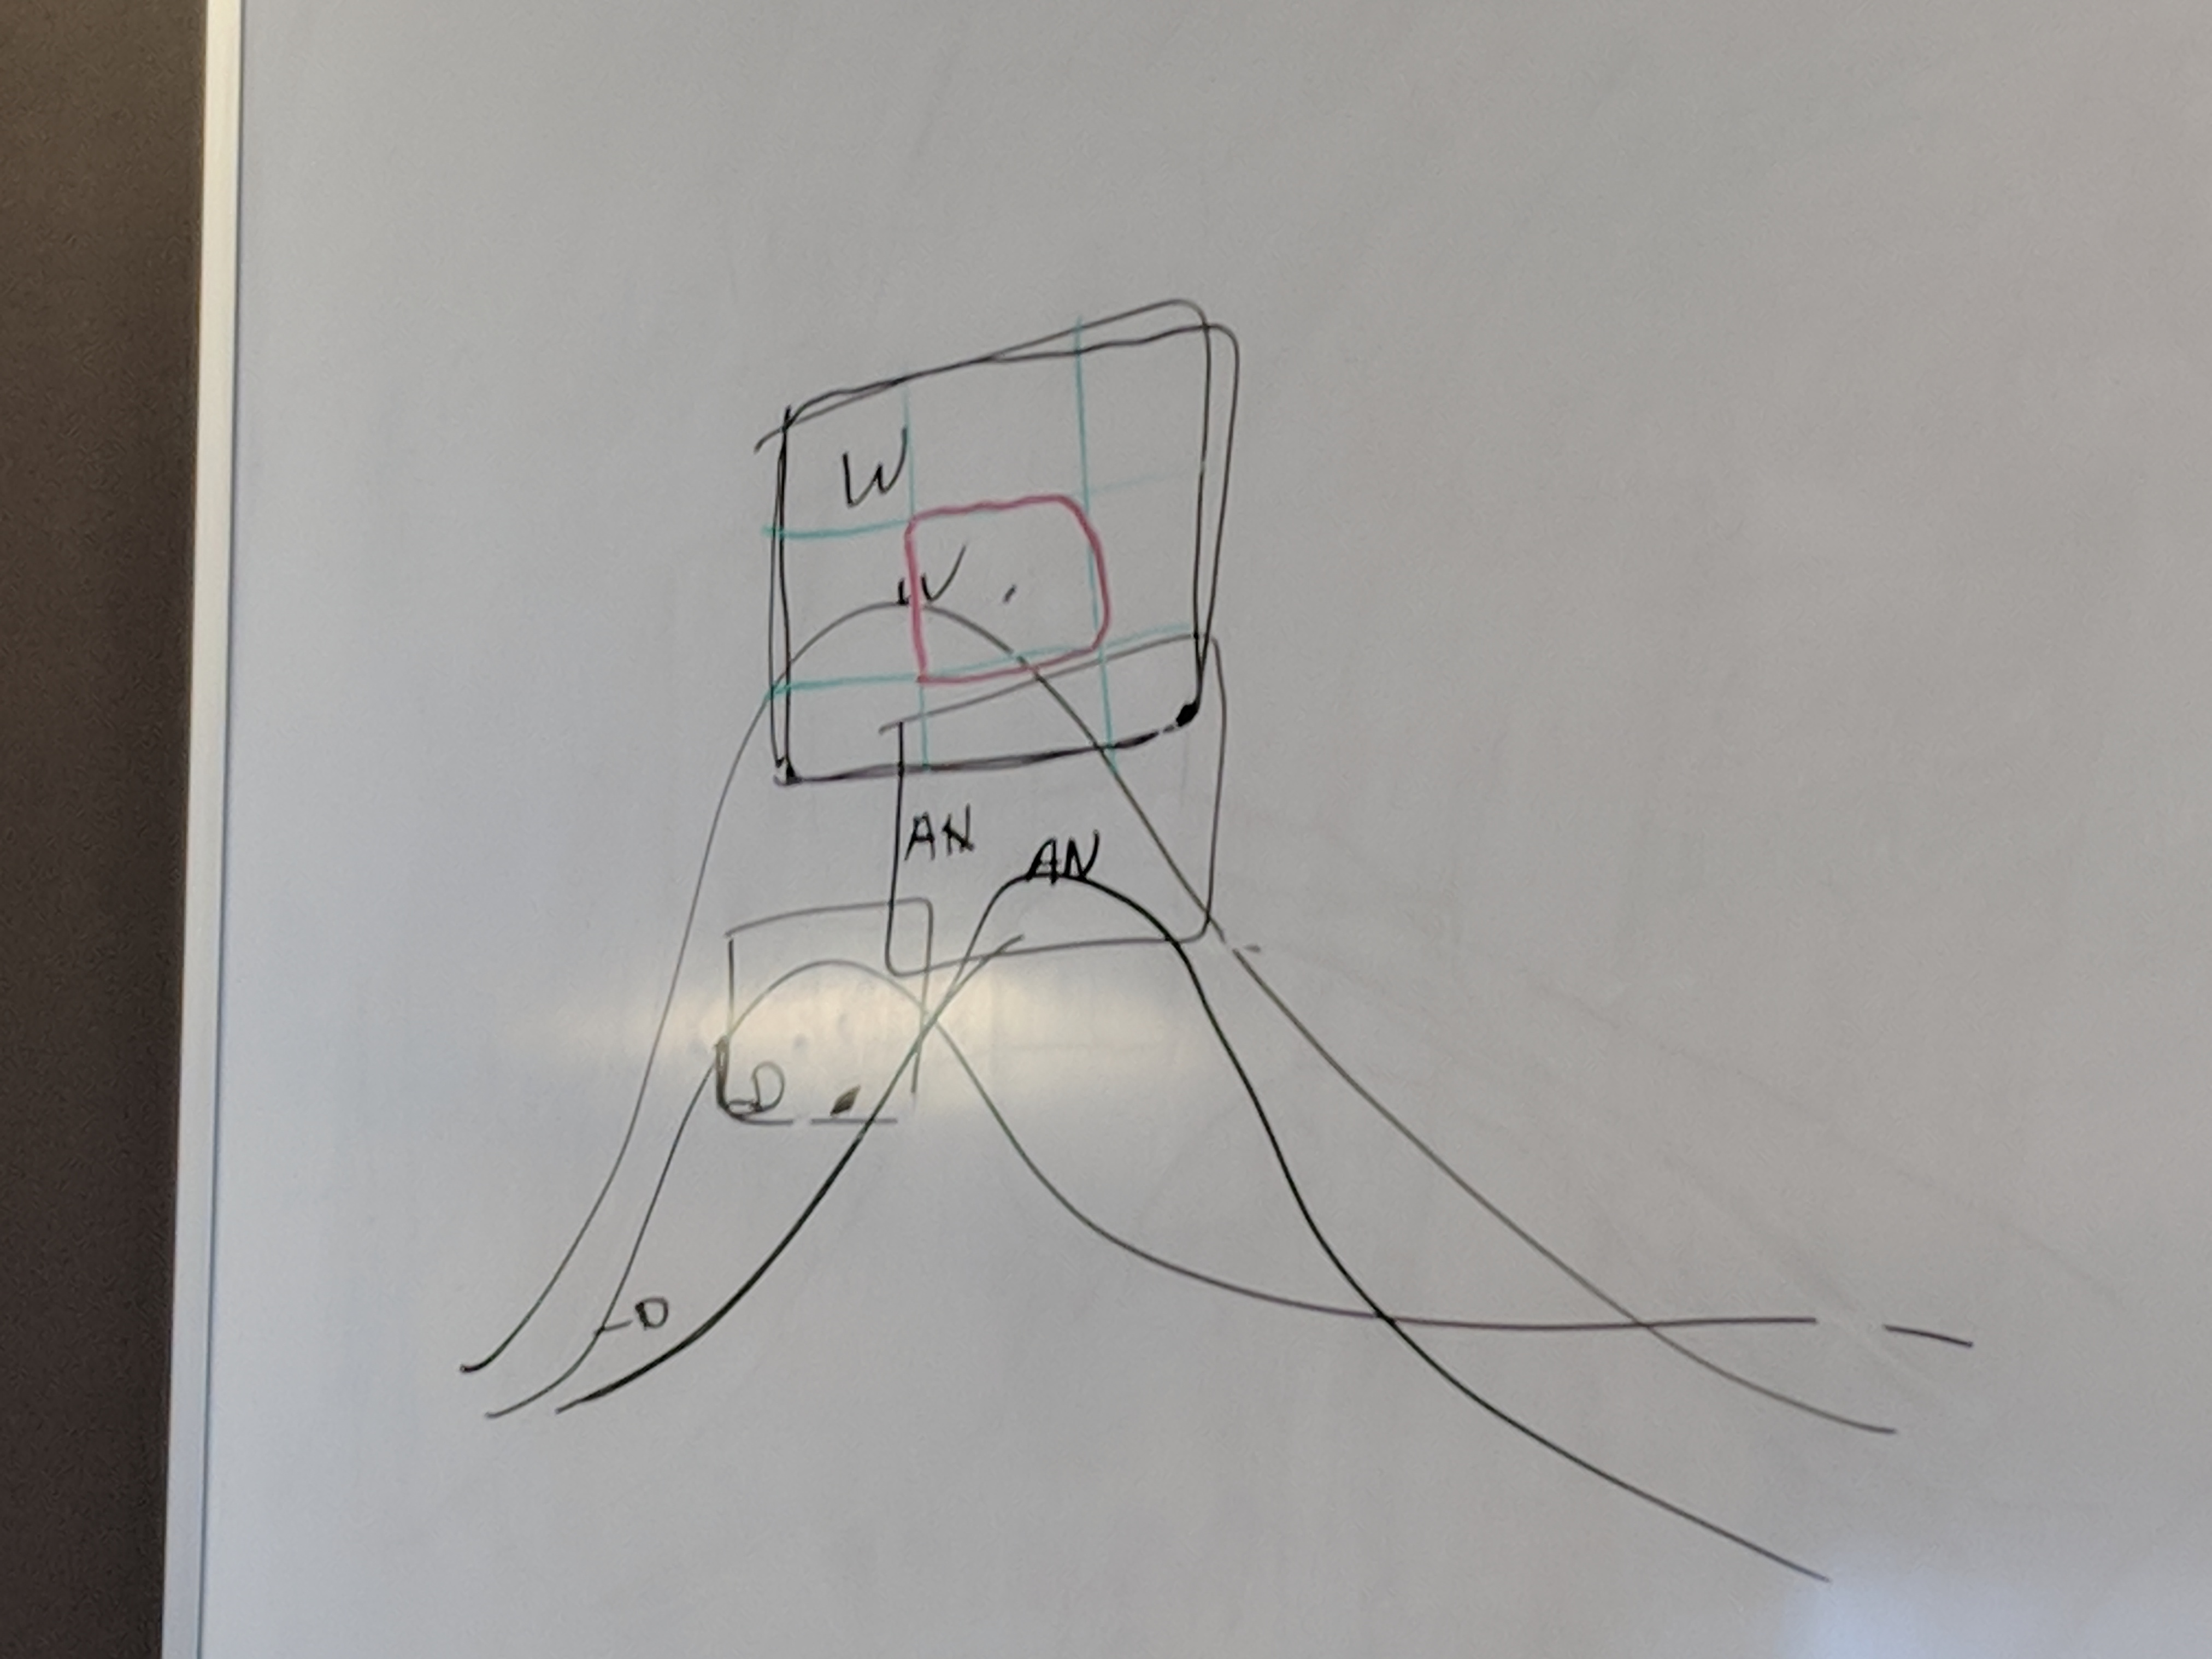 W
W
AN
AN
D
D